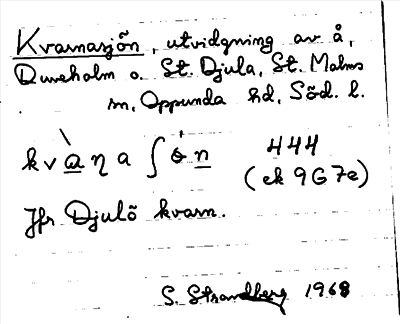 Kvarnasjön, utvidgning av å,
Duveholm o. St. Djula, St. Malms
sn, Oppunda hd, Söd. l.
kvaꞃa ʃɵn 444
(ek 9G7e)
Jfr Djulö kvarn.
S. Strandberg 1968